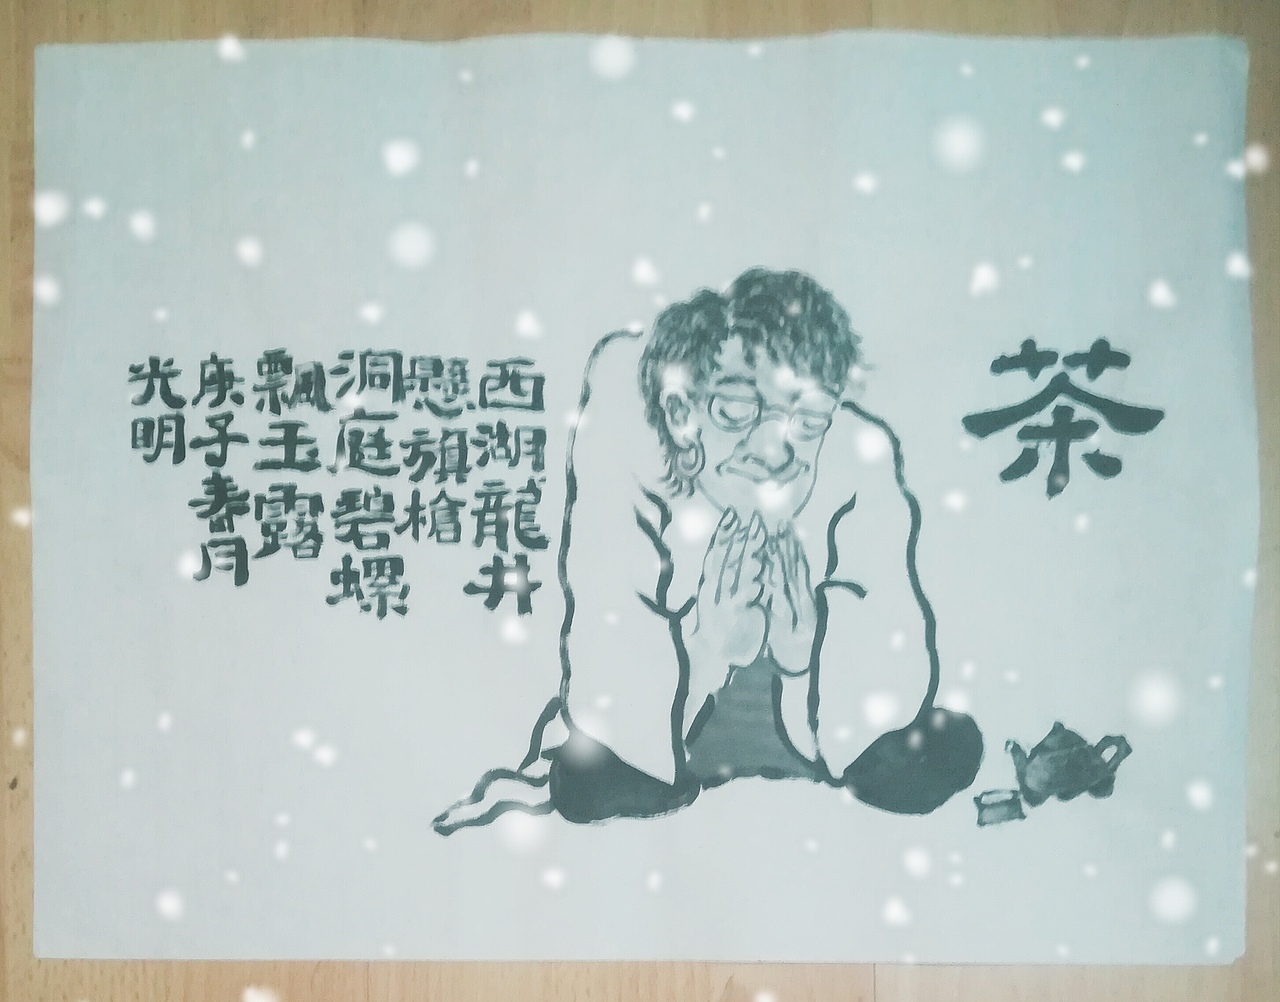 茶
西湖龍井
懸旗槍
洞庭碧螺
飄玉露
庚子春月
光明